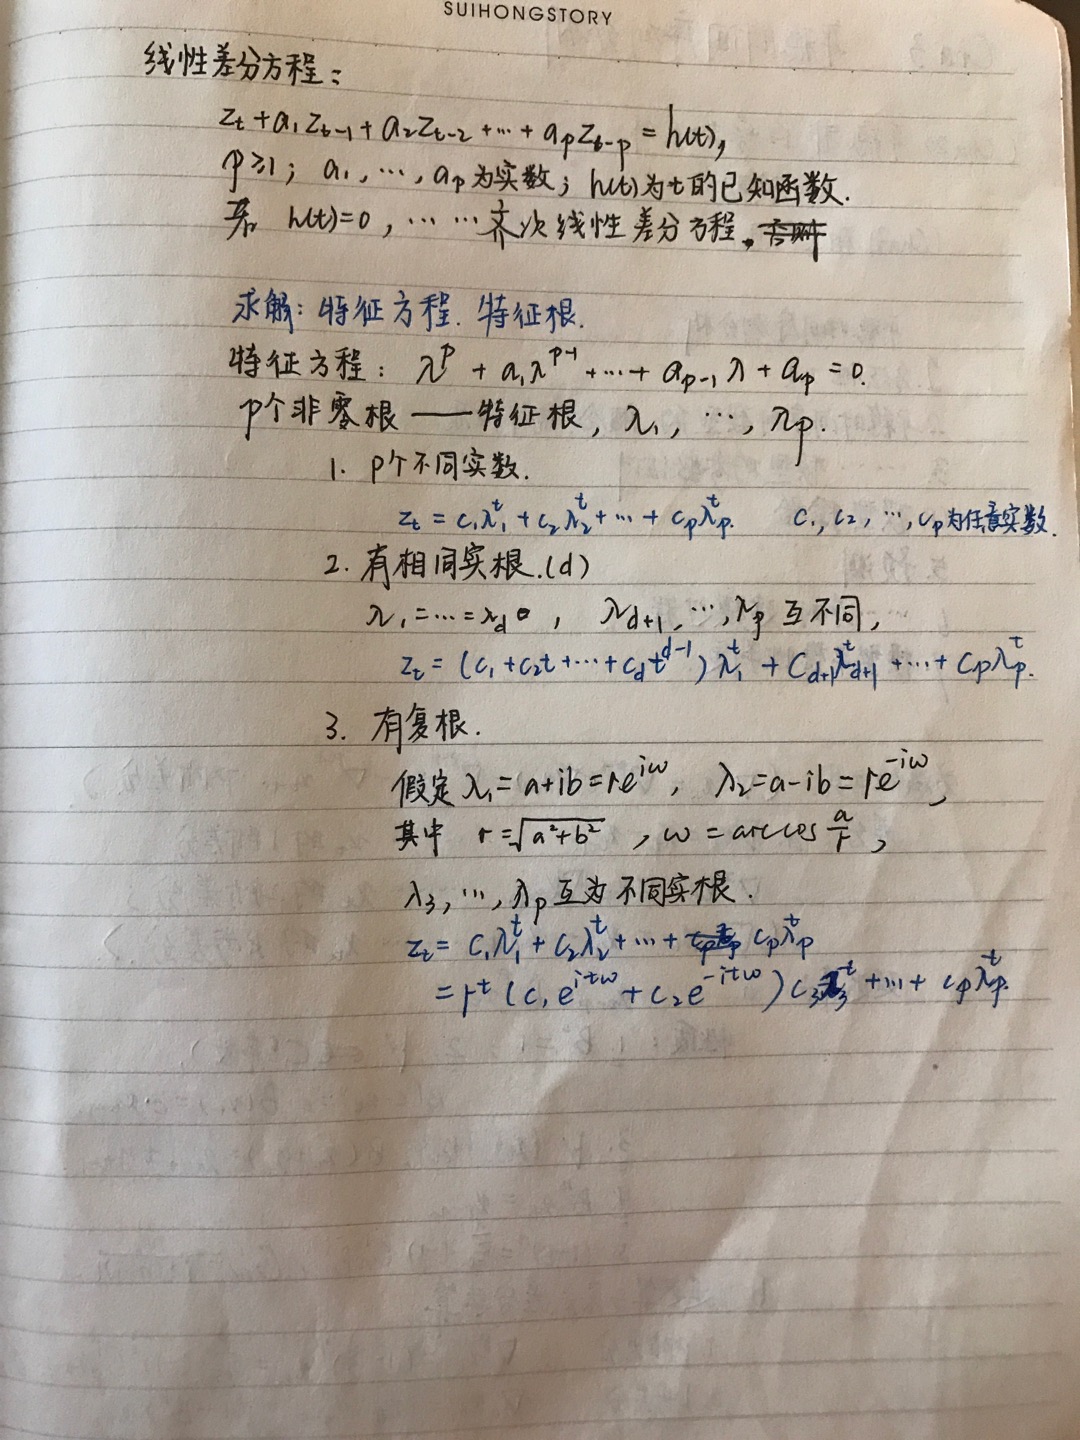 SUIHONGSTORY
线性差分方程:
z_t + a_1 z_{t-1} + a_2 z_{t-2} + ··· + a_p z_{t-p} = h(t),
p≥1; a_1, ···, a_p 为实数; h(t) 为 t 的已知函数.
若 h(t)=0, ··· ··· 齐次线性差分方程.
求解: 特征方程. 特征根.
特征方程: λ^p + a_1 λ^{p-1} + ··· + a_{p-1} λ + a_p = 0.
p个非零根 —— 特征根, λ_1, ···, λ_p.
1. p个不同实数.
z_t = c_1 λ_1^t + c_2 λ_2^t + ··· + c_p λ_p^t. c_1, c_2, ···, c_p 为任意实数.
2. 有相同实根.(d)
λ_1 = ··· = λ_d, λ_{d+1}, ···, λ_p 互不同,
z_t = (c_1 + c_2 t + ··· + c_d t^{d-1}) λ_1^t + c_{d+1} λ_{d+1}^t + ··· + c_p λ_p^t.
3. 有复根.
假定 λ_1 = a+ib = re^{iω}, λ_2 = a-ib = re^{-iω},
其中 r = √(a²+b²), ω = arccos a/r,
λ_3, ···, λ_p 互为不同实根.
z_t = c_1 λ_1^t + c_2 λ_2^t + ··· + c_p λ_p^t
= r^t (c_1 e^{itω} + c_2 e^{-itω}) c_3 λ_3^t + ··· + c_p λ_p^t.